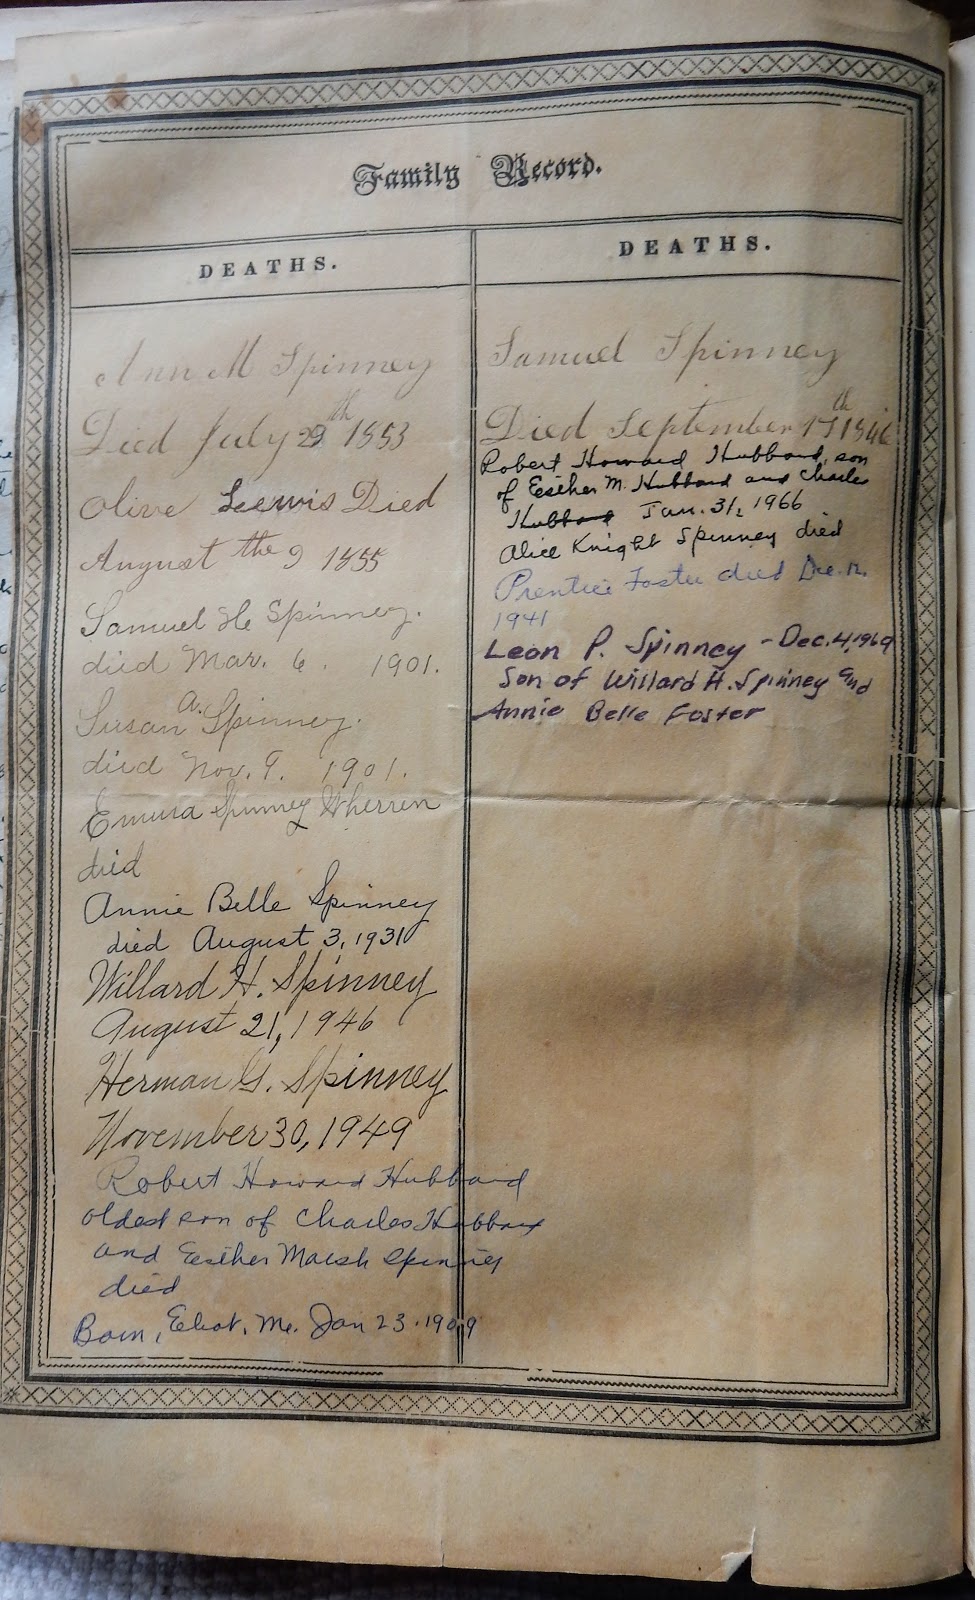 Family Record.
DEATHS.
Ann M Spinney
Died July 29th 1853
Olive Leewis Died
August the 9 1855
Samuel H Spinney.
died Mar. 6. 1901.
Susan A. Spinney.
died Nov. 9. 1901.
Emma Spinney Wherren
died
Annie Belle Spinney
died August 3, 1931
Willard H. Spinney
August 21, 1946
Herman G. Spinney
November 30, 1949
Robert Howard Hubbard
oldest son of Charles Hubbard
and Esther Marsh Spinney
died
Born, Eliot, Me. Jan 23. 1909
DEATHS.
Samuel Spinney
Died September 17th 1846
Robert Howard Hubbard, son
of Esther M. Hubbard and Charles
Hubbard Jan. 31, 1966
Alice Knight Spinney died
Prentice Foster died Dec. 12.
1941
Leon P. Spinney - Dec. 4, 1969
Son of Willard H. Spinney and
Annie Belle Foster